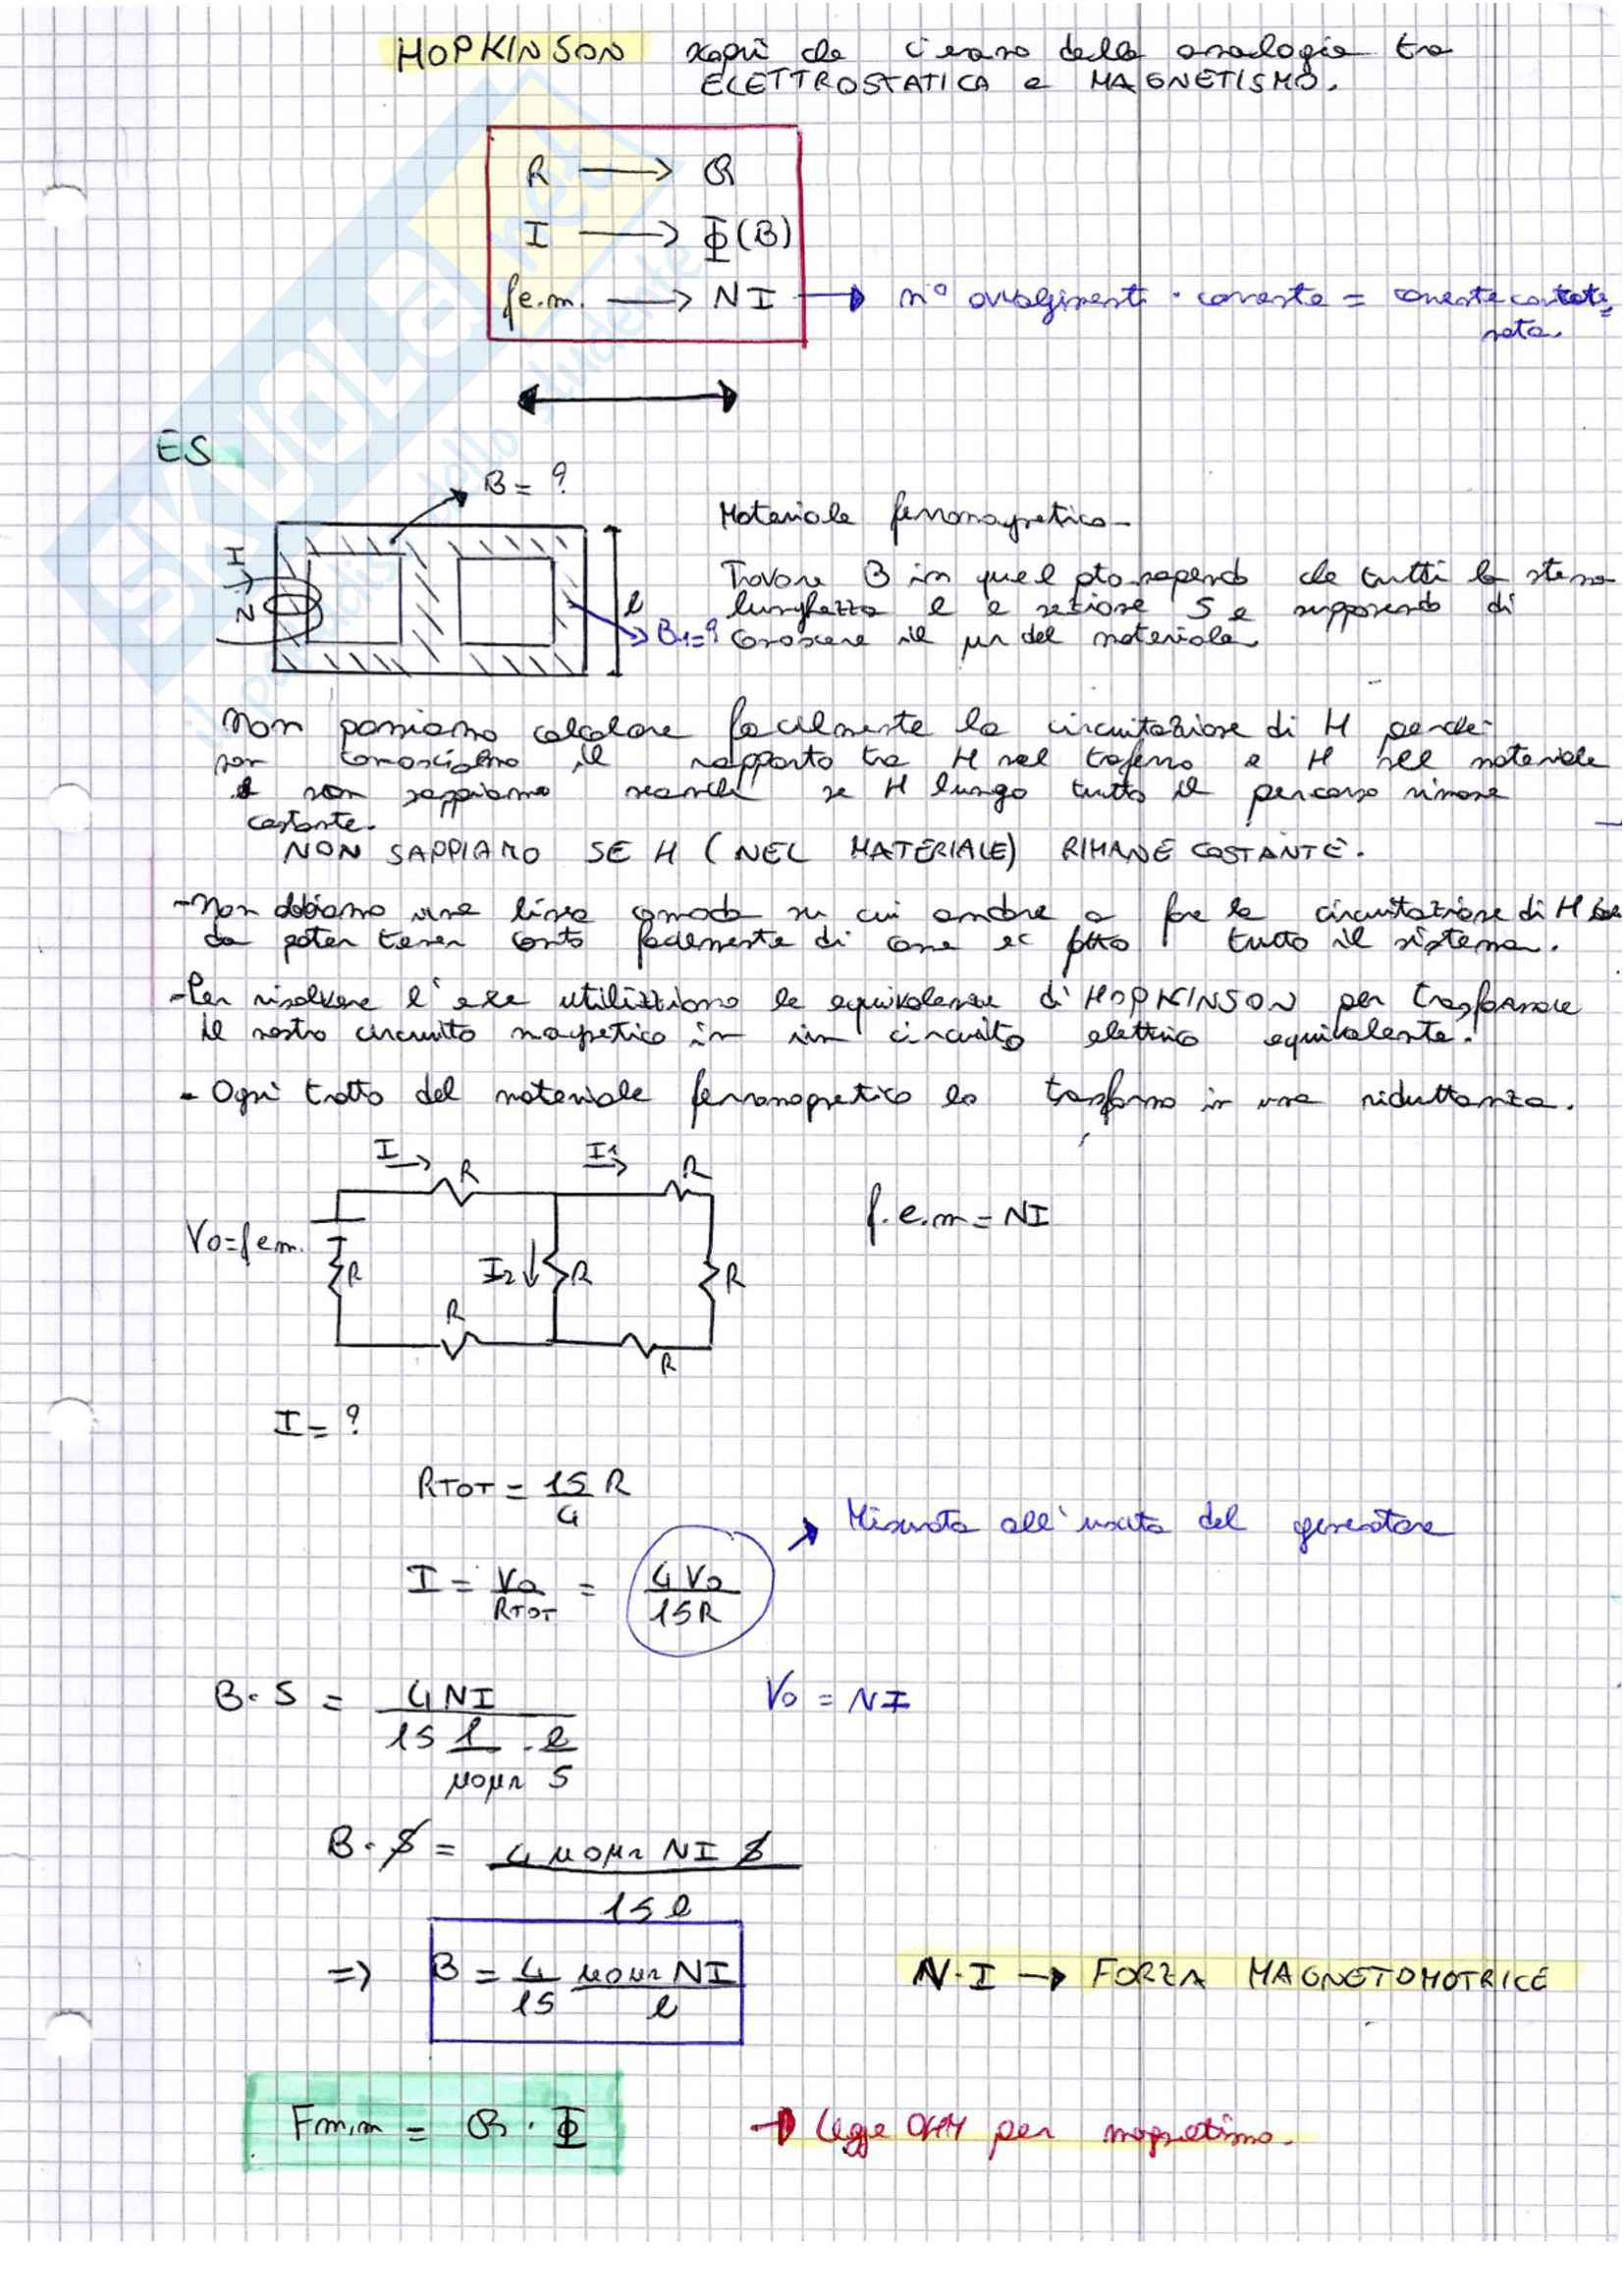 HOPKINSON scoprì che c'erano delle analogie tra
ELETTROSTATICA e MAGNETISMO.
R → ℛ
I → Φ(B)
f.e.m. → NI → n° avvolgimenti · corrente = corrente concate=
nata.
ES
B = ?
I
N
l
B1=?
Materiale ferromagnetico-
Trovare B in quel pto sapendo che tutti la stessa
lunghezza l e sezione S e supponendo di
conoscere il μr del materiale.
Non possiamo calcolare facilmente la circuitazione di H perché
non conosciamo il rapporto tra H nel traferro e H nel materiale
e non sappiamo neanche se H lungo tutto il percorso rimane
costante.
NON SAPPIAMO SE H (NEL MATERIALE) RIMANE COSTANTE.
-Non abbiamo una linea comoda su cui andare a fare la circuitazione di H
da poter tener conto facilmente di come è fatto tutto il sistema.
-Per risolvere l'exe utilizziamo le equivalenze di HOPKINSON per trasformare
il nostro circuito magnetico in un circuito elettrico equivalente.
- Ogni tratto del materiale ferromagnetico lo trasformo in una riluttanza.
I → R I1 → R
V0=fem. R I2 ↓ R R
R R
f.e.m = NI
I = ?
RTOT = 15/4 R
→ Misurata all'uscita del generatore
I = V0/RTOT = 4V0/15R
B·S = 4NI / (15 1/μ0μr · l/S)
V0 = NI
B·S = 4 μ0μr NI S / 15 l
=> B = 4/15 μ0μr NI / l
N·I → FORZA MAGNETOMOTRICE
Fm.m = ℛ · Φ
→ Legge OHM per magnetismo.
SKUOLA.net